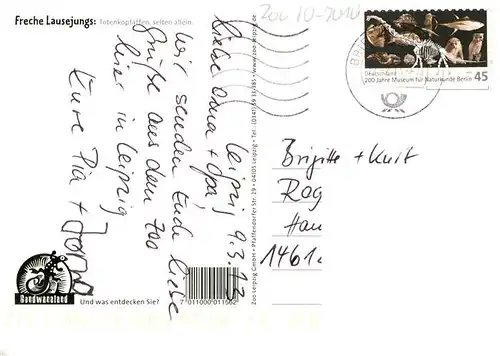 Freche Lausejungs: Totenkopfaffen, selten allein.
Zoo 10-2010
Leipzig 9.3.13
Liebe Oma + Opa,
wir senden Euch liebe
Grüße aus dem Zoo
hier in Leipzig
Eure Pia +
Gondwanaland
Und was entdecken Sie?
7 011000 011562
Zoo Leipzig GmbH • Pfaffendorfer Str. 29 • 04105 Leipzig • Tel.
www.zoo-leipzig.de
BRIE
Deutschland
200 Jahre Museum für Naturkunde Berlin
45
Brigitte + Kurt
Rog
Hau
1461